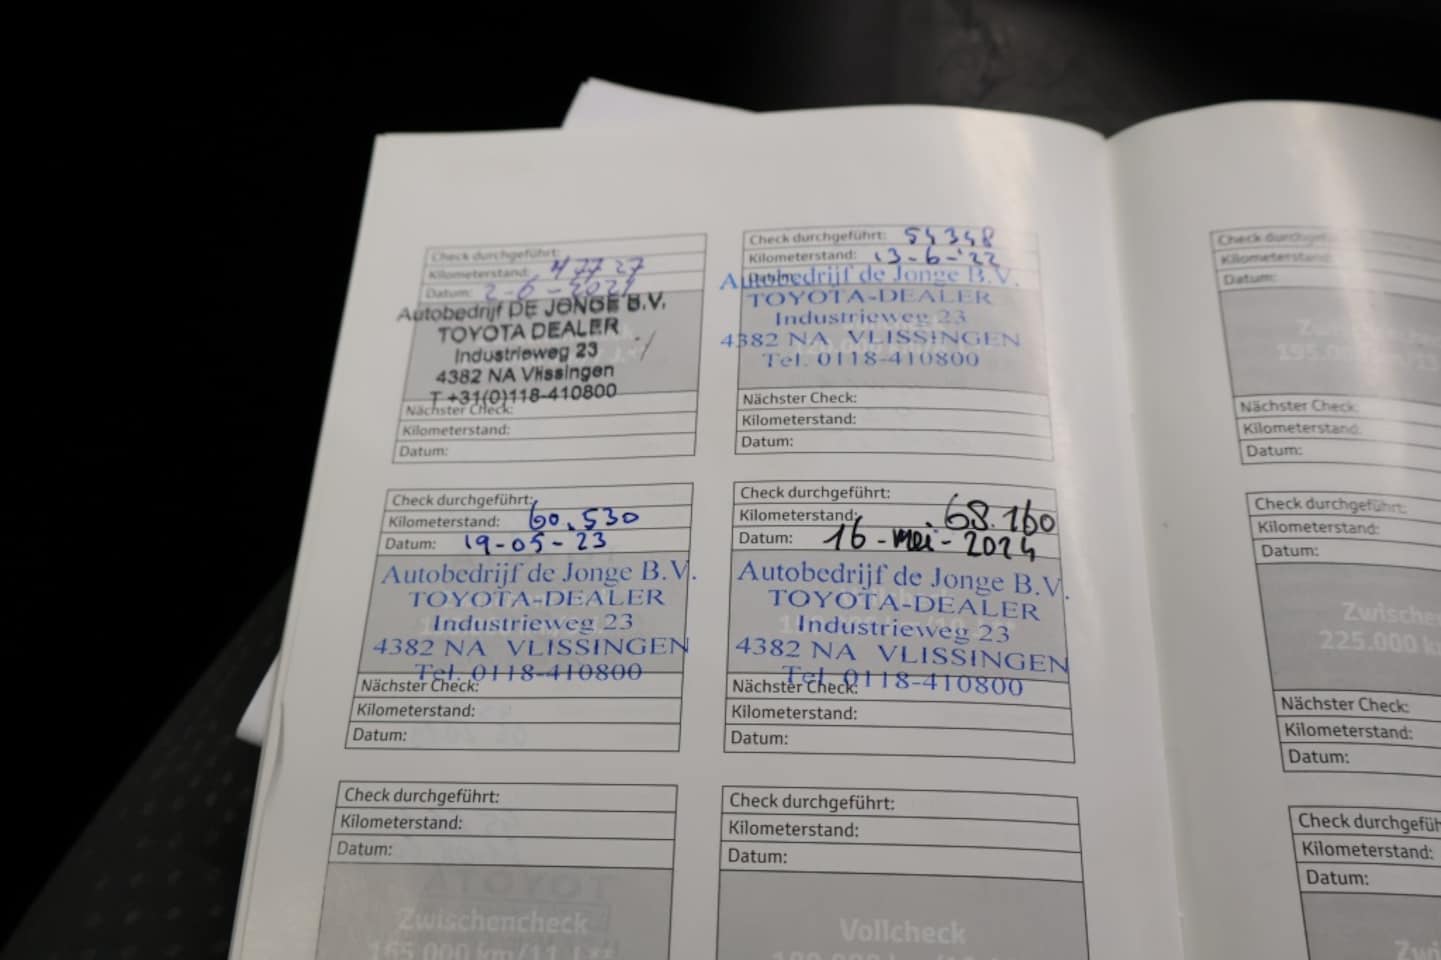 Check durchgeführt:
Kilometerstand: 47727
Datum: 2-6-2021
Autobedrijf DE JONGE B.V.
TOYOTA DEALER
Industrieweg 23
4382 NA Vlissingen
T +31(0)118-410800
Nächster Check:
Kilometerstand:
Datum:
Check durchgeführt: 54348
Kilometerstand: 13-6-'22
Datum:
Autobedrijf de Jonge B.V.
TOYOTA-DEALER
Industrieweg 23
4382 NA VLISSINGEN
Tel. 0118-410800
Nächster Check:
Kilometerstand:
Datum:
Check durchgeführt:
Kilometerstand: 60.530
Datum: 19-05-23
Autobedrijf de Jonge B.V.
TOYOTA-DEALER
Industrieweg 23
4382 NA VLISSINGEN
Tel. 0118-410800
Nächster Check:
Kilometerstand:
Datum:
Check durchgeführt:
Kilometerstand: 68.160
Datum: 16-mei-2024
Autobedrijf de Jonge B.V.
TOYOTA-DEALER
Industrieweg 23
4382 NA VLISSINGEN
Tel. 0118-410800
Nächster Check:
Kilometerstand:
Datum:
Check durchgeführt:
Kilometerstand:
Datum:
Zwischencheck
Check durchgeführt:
Kilometerstand:
Datum:
Vollcheck
Check durchgeführt:
Kilometerstand:
Datum:
Nächster Check:
Kilometerstand:
Datum:
Check durchgeführt:
Kilometerstand:
Datum:
Zwischen
225.000 k
Nächster Check:
Kilometerstand:
Datum:
Check durchgefüh
Kilometerstand:
Datum: